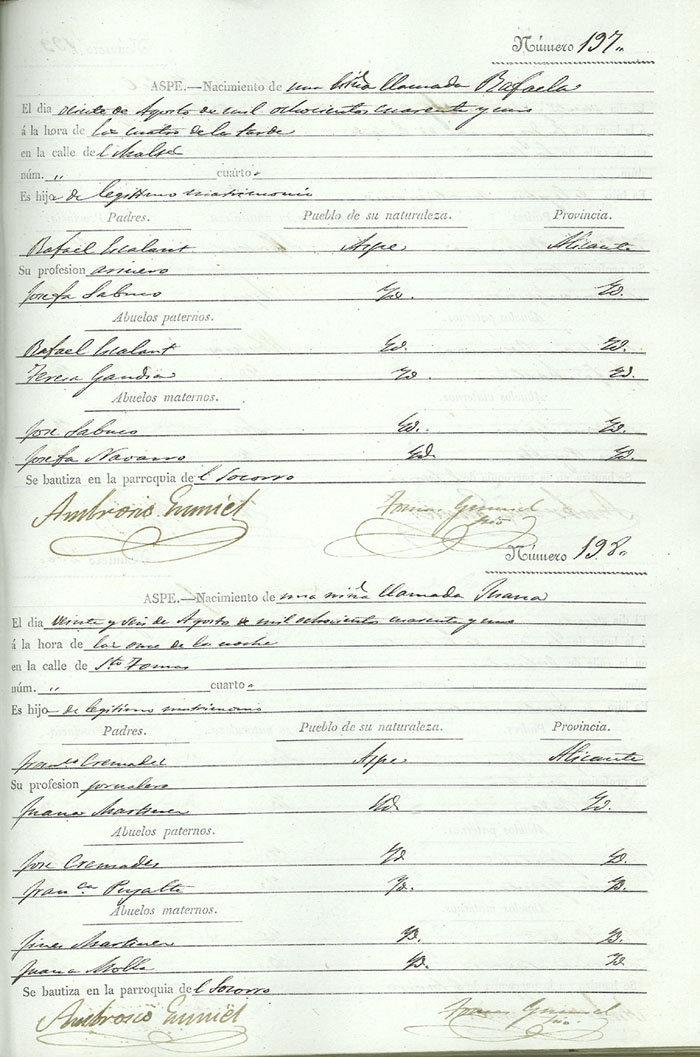 Número 197.
ASPE.—Nacimiento de una niña llamada Rafaela
El dia veinte de Agosto de mil ochocientos cuarenta y uno
á la hora de las cuatro de la tarde
en la calle del
núm. „ cuarto „
Es hija de legitimo matrimonio
Padres. Pueblo de su naturaleza. Provincia.
Rafael Escalant Aspe Alicante
Su profesion arriero
Josefa Sabuco Yd. Yd.
Abuelos paternos.
Rafael Escalant Yd. Yd.
Teresa Gandia Yd. Yd.
Abuelos maternos.
Jose Sabuco Yd. Yd.
Josefa Navarro Yd. Yd.
Se bautiza en la parroquia del Socorro
Ambrosio
Número 198.
ASPE.—Nacimiento de una niña llamada Juana
El dia veinte y seis de Agosto de mil ochocientos cuarenta y uno
á la hora de las once de la noche
en la calle de Sto Tomas
núm. „ cuarto „
Es hija de legitimo matrimonio
Padres. Pueblo de su naturaleza. Provincia.
Franco Cremades Aspe Alicante
Su profesion jornalero
Juana Martinez Yd Yd.
Abuelos paternos.
Jose Cremades Yd Yd.
Franca Yd. Yd.
Abuelos maternos.
Martinez Yd. Yd.
Juana Molla Yd. Yd
Se bautiza en la parroquia del Socorro
Ambrosio